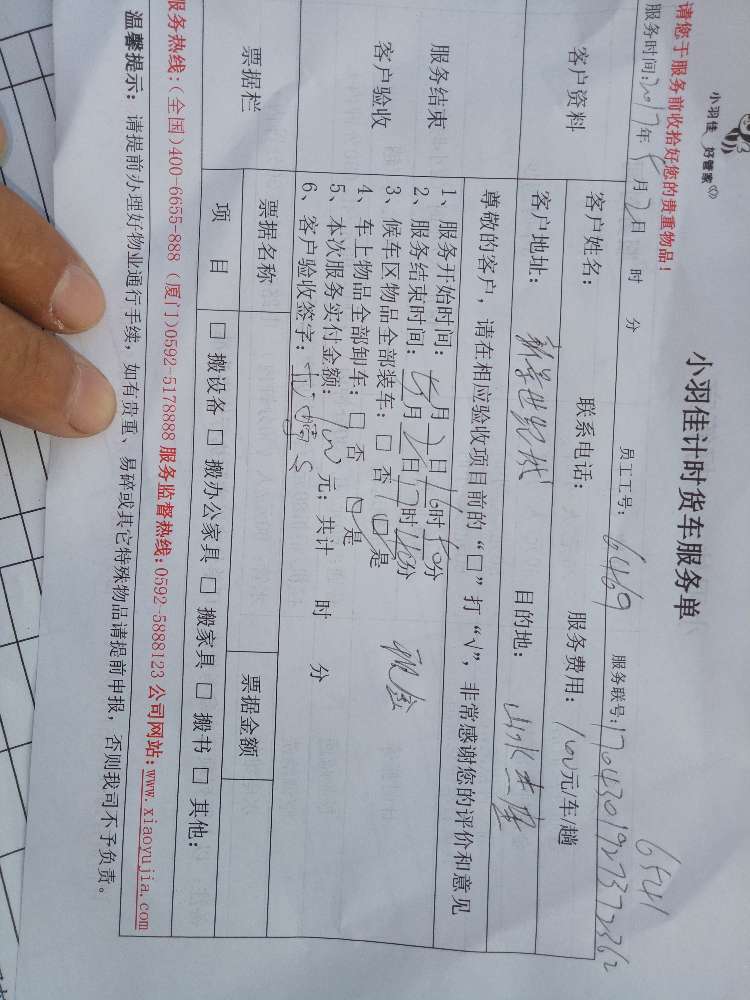 小羽佳 好管家
小羽佳计时货车服务单
6541
请您于服务前收拾好您的贵重物品！
服务时间:2017年5月2日 时 分 员工工号: 6469 服务联号:1704301927372362
客户资料
客户姓名: 联系电话: 服务费用: 100元/车/趟
客户地址: 新景世纪城 目的地: 山水
尊敬的客户，请在相应验收项目前的“□”打“√”，非常感谢您的评价和意见
服务结束
客户验收
1、服务开始时间: 5月2日16时40分
2、服务结束时间: 5月2日17时40分
3、候车区物品全部装车: □ 否 □ 是
4、车上物品全部卸车: □ 否 □ 是 现金
5、本次服务实付金额: 100元; 共计 时 分
6、客户验收签字:
票据栏
票据名称 票据金额
项 目 □ 搬设备 □ 搬办公家具 □ 搬家具 □ 搬书 □ 其他:
服务热线:(全国)400-6655-888 (厦门)0592-5178888 服务监督热线:0592-5888123 公司网站:www.xiaoyujia.com
温馨提示: 请提前办理好物业通行手续，如有贵重、易碎或其它特殊物品请提前申报，否则我司不予负责。